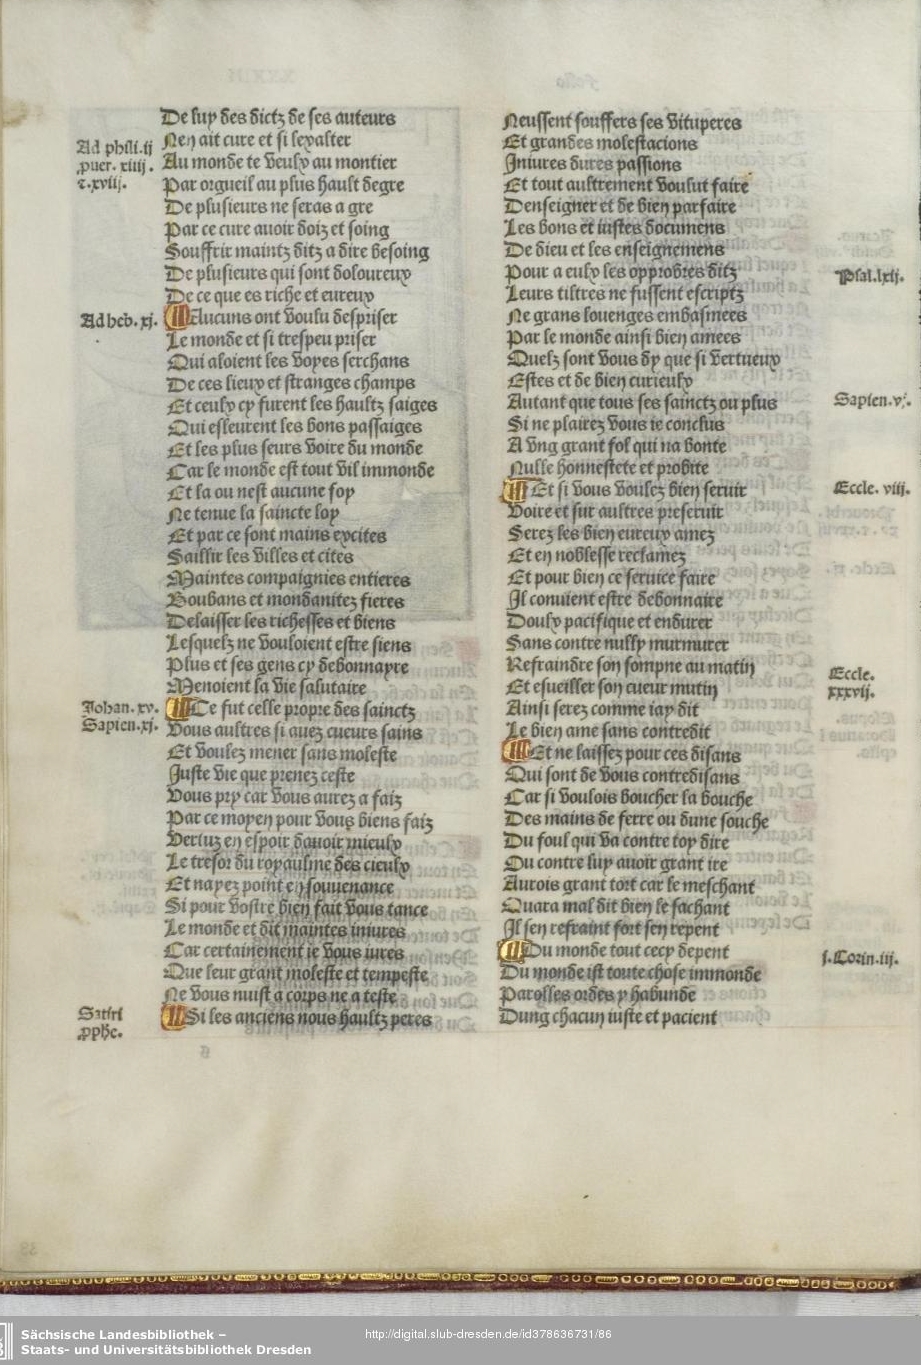 De luy des dictz de ses auteurs
Nen ait cure et si lexalter
Ad phili. ij
Au monde te veulx au montier
puer. xiiij.
Par orgueil au plus hault degre
c. xvij.
De plusieurs ne seras a gre
Par ce cure auoir doiz et soing
Souffrir maintz ditz a dire besoing
De plusieurs qui sont doloureux
De ce que es riche et eureux
Ad heb. xj.
Aucuns ont voulu despriser
Le monde et si trespeu priser
Qui aloient les voyes serchans
De ces lieux et stranges champs
Et ceulx cy furent les haultz saiges
Qui esleurent les bons passaiges
Et les plus seurs voire du monde
Car le monde est tout vil immonde
Et la ou nest aucune foy
Ne tenue la saincte loy
Et par ce sont mains excites
Saillir les villes et cites
Maintes compaignies entieres
Boubans et mondanitez fieres
Delaisser les richesses et biens
Lesquelz ne vouloient estre siens
Plus et ses gens cy debonnayre
Menoient la vie salutaire
Johan. xv.
Ce fut celle propre des sainctz
Sapien. xj.
Vous aultres si auez cueurs sains
Et voulez mener sans moleste
Juste vie que prenez ceste
Vous pry car vous aurez a faiz
Par ce moyen pour vous biens faiz
Vertuz en espoir dauoir mieulx
Le tresor du royaulme des cieulx
Et nayez point en souuenance
Si pour vostre bien fait vous tance
Le monde et dit maintes iniures
Car certainement ie vous iures
Que leur grant moleste et tempeste
Ne vous nuist a corps ne a teste
Satiri
pphe.
Si les anciens nous haultz peres
Neussent souffers ses vituperes
Et grandes molestacions
Iniures dures passions
Et tout aultrement voulut faire
Denseigner et de bien parfaire
Les bons et iustes documens
De dieu et les enseignemens
Pour a eulx les opprobres ditz
Psal. lxij.
Leurs tiltres ne fussent escriptz
Ne grans louenges embasmees
Par le monde ainsi bien amees
Quelz sont vous dy que si vertueux
Estes et de bien curieulx
Autant que tous ses sainctz ou plus
Sapien. v.
Si ne plairez vous ie conclus
A vng grant fol qui na bonte
Nulle honnestete et probite
Et si vous voulez bien seruir
Eccle. viij.
Voire et sur aultres preseruir
Serez les bien eureux amez
Et en noblesse reclamez
Et pour bien ce seruice faire
Il conuient estre debonnaire
Doulx pacifique et endurer
Sans contre nully murmurer
Refraindre son sompne au matin
Eccle.
xxxvij.
Et esueiller son cueur mutin
Ainsi serez comme iay dit
Le bien ame sans contredit
Et ne laissez pour ces disans
Qui sont de vous contredisans
Car si voulois boucher la bouche
Des mains de ferre ou dune souche
Du foul qui va contre toy dire
Ou contre luy auoir grant ire
Aurois grant tort car le meschant
Quara mal dit bien le sachant
Il sen refraint fort sen repent
Du monde tout cecy depent
j. Corin. iij.
Du monde ist toute chose immonde
Parolles ordes y habunde
Dung chacun iuste et pacient
Sächsische Landesbibliothek –
Staats- und Universitätsbibliothek Dresden
http://digital.slub-dresden.de/id378636731/86